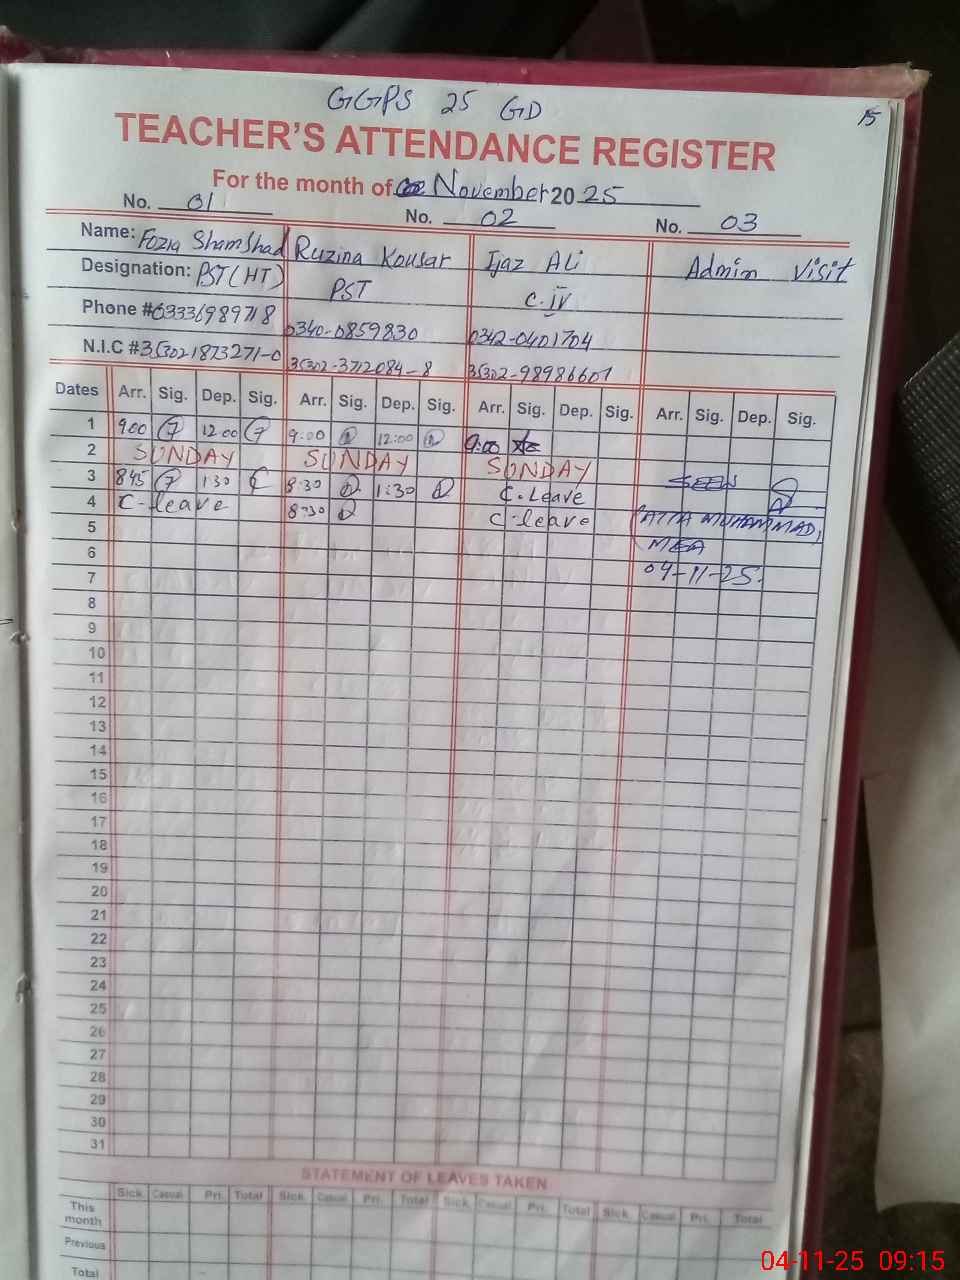 GGPS 25 GD
15
TEACHER'S ATTENDANCE REGISTER
For the month of November 2025
No. 01 No. 02 No. 03
Name: Fozia Shamshad Ruzina Kousar Ijaz Ali Admin Visit
Designation: PST (HT) PST C.IV
Phone # 03336989718 0340-0859830 0342-0401704
N.I.C # 353021873271-0 35302-3712084-8 35302-98986607
Dates Arr. Sig. Dep. Sig. Arr. Sig. Dep. Sig. Arr. Sig. Dep. Sig. Arr. Sig. Dep. Sig.
1 9:00 12:00 9:00 12:00 9:00
2 SUNDAY SUNDAY SUNDAY
3 8:45 1:30 8:30 1:30 C.Leave SEEN
4 C-leave 8:30 C-leave (ATTA MUHAMMAD)
5 MEA
6 04-11-25.
7
8
9
10
11
12
13
14
15
16
17
18
19
20
21
22
23
24
25
26
27
28
29
30
31
STATEMENT OF LEAVES TAKEN
Sick. Casual Pri. Total Sick. Casual Pri. Total Sick. Casual Pri. Total Sick. Casual Pri. Total
This month
Previous
Total
04-11-25 09:15